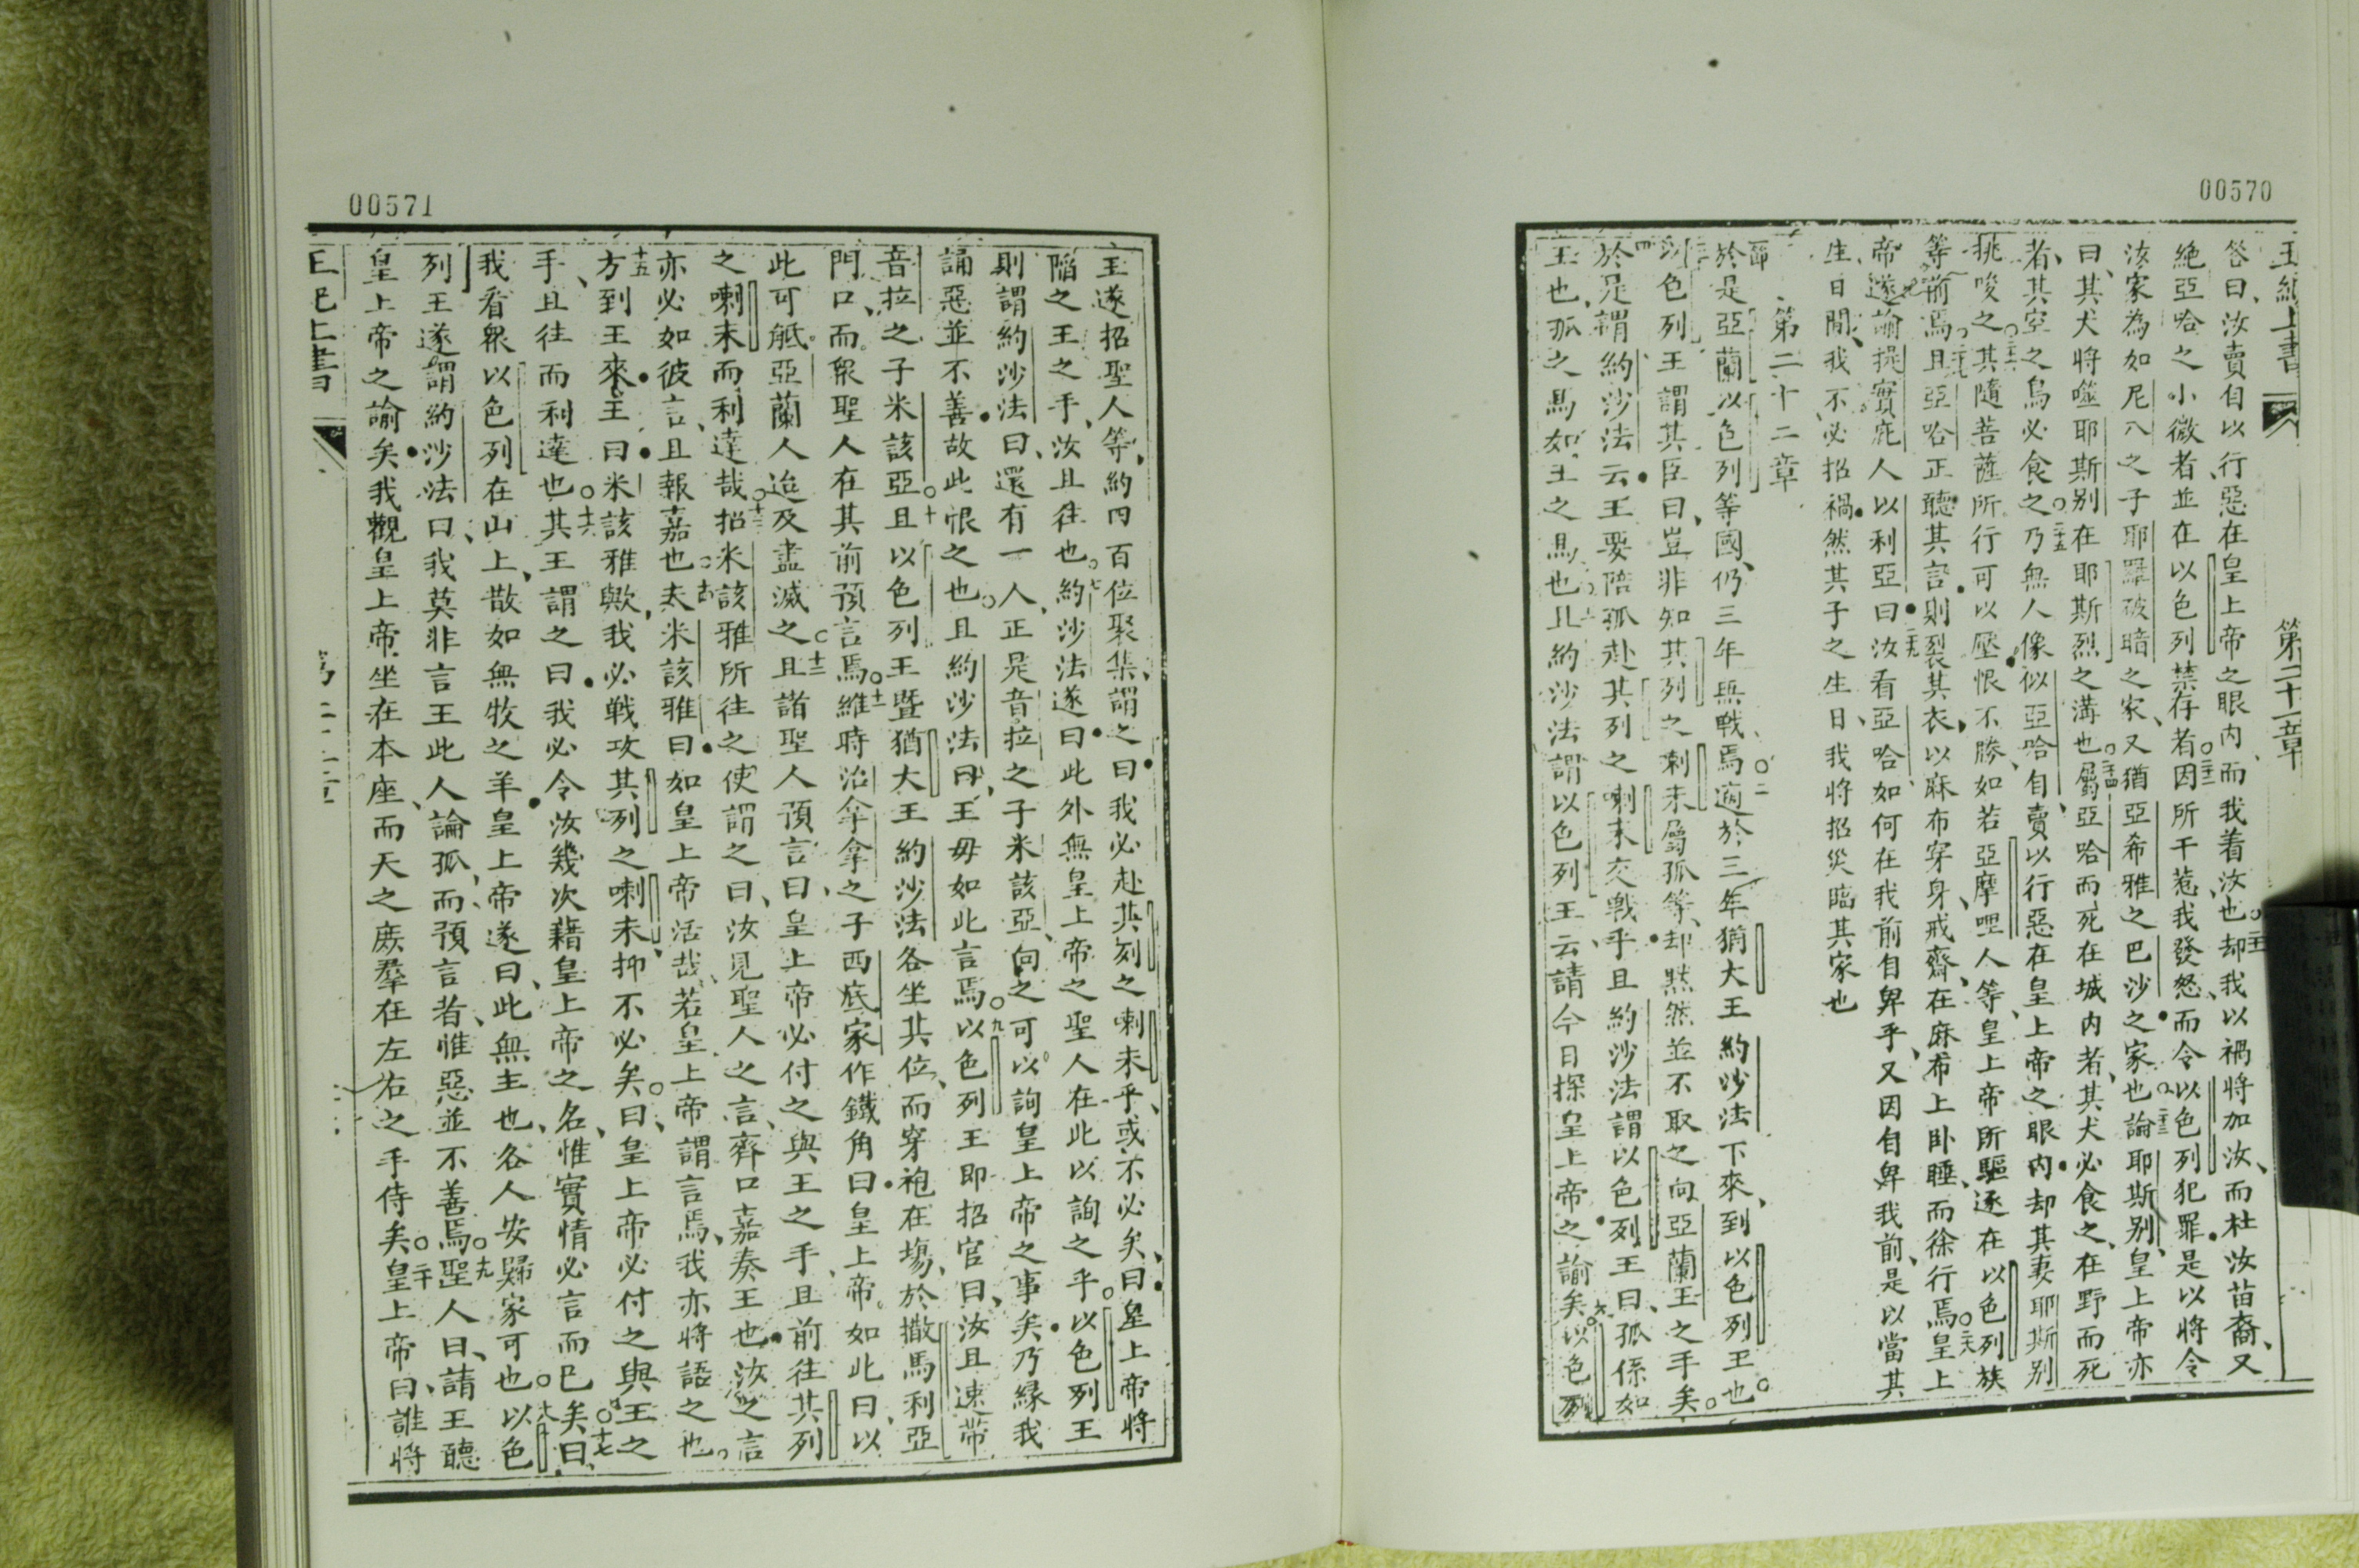 00570
王紀上書
第二十一章
答曰、汝賣自以行惡在皇上帝之眼內、而我着汝也。却我以禍將加汝、而杜汝苗裔、又
絕亞哈之小微者並在以色列禁存者因所干惹我發怒、而令以色列犯罪是以將令
汝家為如尼八之子耶羅破暗之家、又猶亞希雅之巴沙之家也論耶斯別皇上帝亦
曰、其犬將噬耶斯別在耶斯烈之溝也屬亞哈而死在城內者、其犬必食之、在野而死
者、其空之鳥必食之乃無人像似亞哈自賣以行惡在皇上帝之眼內却其妻耶斯別
挑唆之其隨菩薩所行可以壓恨不勝如若亞摩哩人等、皇上帝所驅逐在以色列族
等前焉且亞哈正聽其言則裂其衣、以麻布穿身戒齋、在麻布上卧睡、而徐行焉皇上
帝遂諭提實庇人以利亞曰汝看亞哈如何在我前自卑乎、又因自卑我前、是以當其
生日間、我不必招禍然其子之生日、我將招災臨其家也
第二十二章
於是亞蘭以色列等國、仍三年無戰焉適於三年猶大王約沙法下來、到以色列王也。
以色列王謂其臣曰、豈非知其列之喇末屬孤等、却默然並不取之向亞蘭王之手矣。
於是謂約沙法云王要陪孤赴其列之喇末交戰乎且約沙法謂以色列王曰、孤係如
王也、孤之馬如王之馬也且約沙法謂以色列王云、請今日探皇上帝之諭矣以色列
00571
王遂招聖人等、約四百位聚集、謂之曰我必赴其列之喇末乎、或不必矣、曰皇上帝將
陷之王之手、汝且往也約沙法遂曰此外無皇上帝之聖人在此以詢之乎以色列王
則謂約沙法曰、還有一人、正是音拉之子米該亞、向之可以詢皇上帝之事矣乃緣我
誦惡並不善故此恨之也且約沙法曰、王毋如此言焉以色列王即招官曰、汝且速帶
音拉之子米該亞且以色列王暨猶大王約沙法各坐其位、而穿袍在塲、於撒馬利亞
門口、而衆聖人在其前預言焉維時洽拿拿之子西底家作鐵角曰皇上帝如此曰、以
此可觝亞蘭人迨及盡滅之且諸聖人預言曰、皇上帝必付之與王之手、且前往其列
之喇末而利達哉招米該雅所往之使謂之曰、汝見聖人之言、齊口嘉奏王也汝之言
亦必如彼言、且報嘉也夫米該雅曰如皇上帝活哉、若皇上帝謂言焉、我亦將語之也。
方到王來、王曰米該雅歟、我必戰攻其列之喇末、抑不必矣曰皇上帝必付之與王之
手、且往而利達也其王謂之曰我必令汝幾次藉皇上帝之名、惟實情必言而已矣曰、
我看衆以色列在山上、散如無牧之羊皇上帝遂曰、此無主也、各人安歸家可也以色
列王遂謂約沙法曰、我莫非言王此人論孤、而預言者、惟惡並不善焉聖人曰、請王聽
皇上帝之諭矣我觀皇上帝坐在本座、而天之庶羣在左右之手侍矣皇上帝曰、誰將
王紀上書